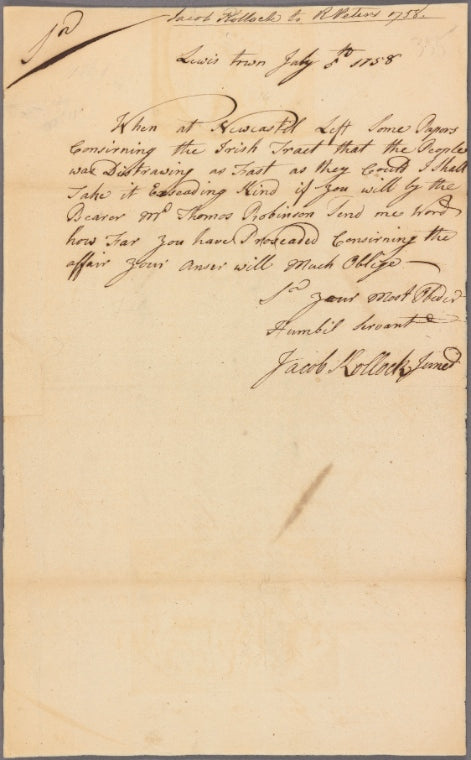 Jacob Kollock to R Peters 1758.
Sr
Lewis town July 5th 1758
When at Newcastel Left Some Papers
Consirning the Irish Tract that the People
was Distrawing as Fast as they Could I Shall
Take it Exseading Kind if you will by the
Bearer Mr Thomas Robinson Send me Word
how Far you have Proseaded Consirning the
affair your Anser will Much Oblige
Sr your Most Obedt
Humbil Servant
Jacob Kollock Junr